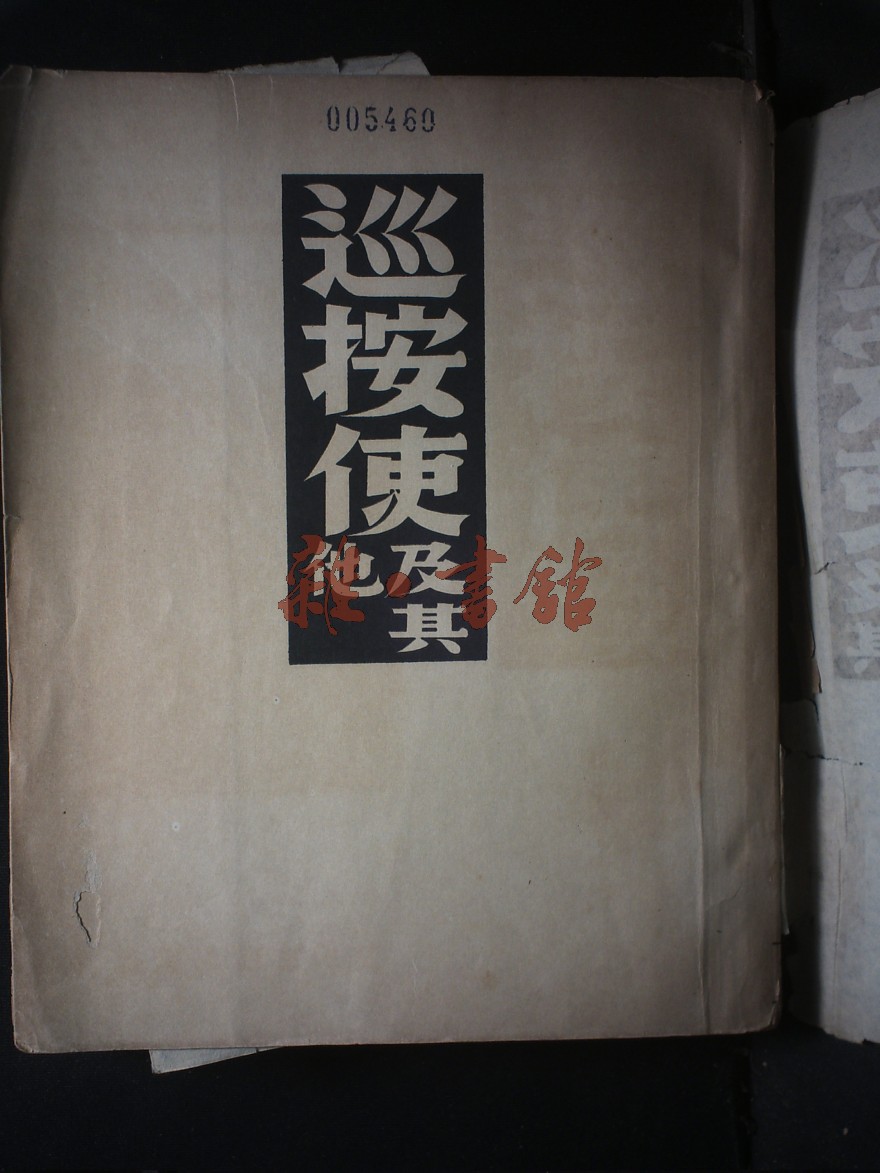 005460
巡按使
及其
他
雜·書館